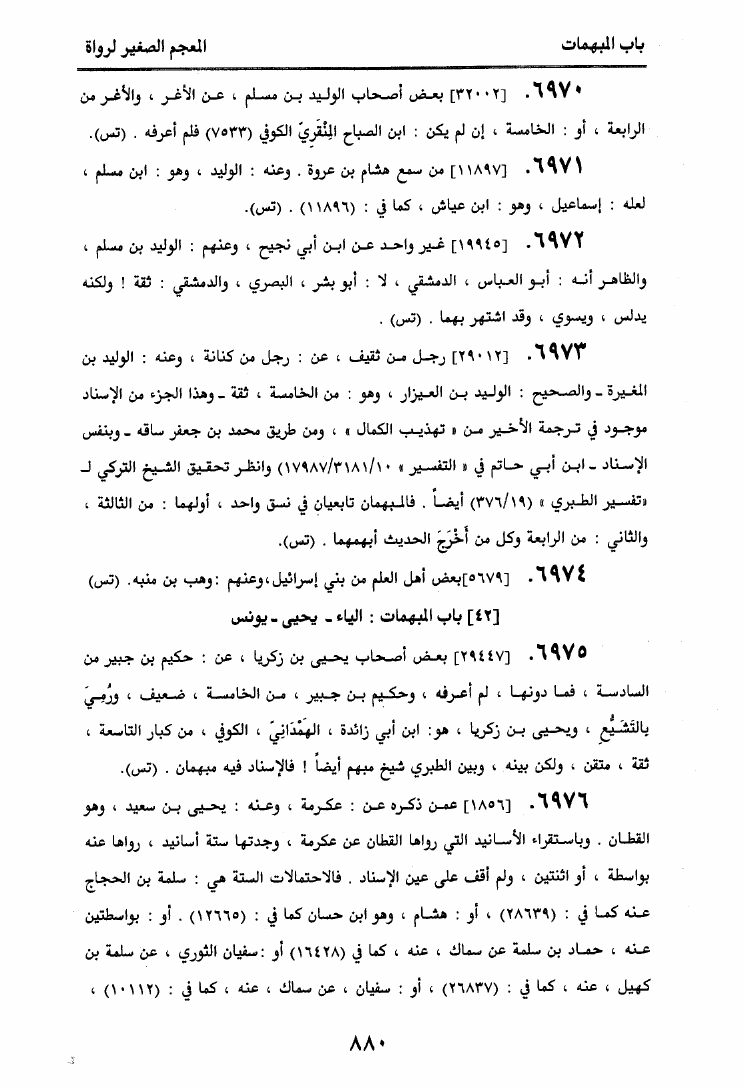 باب المبهمات
المعجم الصغير لرواة
٦٩٧٠. [٣٢٠٠٢] بعض أصحاب الوليد بن مسلم ، عن الأغر ، والأغر من
الرابعة ، أو : الخامسة ، إن لم يكن : ابن الصباح المِنْقَرِيّ الكوفي (٧٥٣٣) فلم أعرفه . (تس).
٦٩٧١. [١١٨٩٧] من سمع هشام بن عروة . وعنه : الوليد ، وهو : ابن مسلم ،
لعله : إسماعيل ، وهو : ابن عياش ، كما في : (١١٨٩٦) . (تس).
٦٩٧٢. [١٩٩٤٥] غير واحد عن ابن أبي نجيح ، وعنهم : الوليد بن مسلم ،
والظاهر أنه : أبو العباس ، الدمشقي ، لا : أبو بشر ، البصري ، والدمشقي : ثقة ! ولكنه
يدلس ، ويسوي ، وقد اشتهر بهما . (تس) .
٦٩٧٣. [٢٩٠١٢] رجل من ثقيف ، عن : رجل من كنانة ، وعنه : الوليد بن
المغيرة ـ والصحيح : الوليد بن العيزار ، وهو : من الخامسة ، ثقة ـ وهذا الجزء من الإسناد
موجود في ترجمة الأخير من « تهذيب الكمال » ، ومن طريق محمد بن جعفر ساقه ـ وبنفس
الإسناد ـ ابن أبي حاتم في « التفسير » ١٧٩٨٧/٣١٨١/١٠) وانظر تحقيق الشيخ التركي لـ
«تفسير الطبري » (٣٧٦/١٩) أيضاً . فالمبهمان تابعيان في نسق واحد ، أولهما : من الثالثة ،
والثاني : من الرابعة وكل من أَخْرَجَ الحديث أبهمهما . (تس).
٦٩٧٤. [٥٦٧٩]بعض أهل العلم من بني إسرائيل،وعنهم :وهب بن منبه. (تس)
[٤٢] باب المبهمات : الياء ـ يحيى ـ يونس
٦٩٧٥. [٢٩٤٤٧] بعض أصحاب يحيى بن زكريا ، عن : حكيم بن جبير من
السادسة ، فما دونها ، لم أعرفه ، وحكيم بن جبير ، من الخامسة ، ضعيف ، ورُمِيَ
بالتَّشَيُّعِ ، ويحيى بن زكريا ، هو: ابن أبي زائدة ، الهَمْدَانِيّ ، الكوفي ، من كبار التاسعة ،
ثقة ، متقن ، ولكن بينه ، وبين الطبري شيخ مبهم أيضاً ! فالإسناد فيه مبهمان . (تس).
٦٩٧٦. [١٨٥٦] عمن ذكره عن : عكرمة ، وعنه : يحيى بن سعيد ، وهو
القطان . وباستقراء الأسانيد التي رواها القطان عن عكرمة ، وجدتها ستة أسانيد ، رواها عنه
بواسطة ، أو اثنتين ، ولم أقف على عين الإسناد . فالاحتمالات الستة هي : سلمة بن الحجاج
عنه كما في : (٢٨٦٣٩) ، أو : هشام ، وهو ابن حسان كما في : (١٢٦٦٥) . أو : بواسطتين
عنه ، حماد بن سلمة عن سماك ، عنه ، كما في (١٦٤٢٨) أو :سفيان الثوري ، عن سلمة بن
كهيل ، عنه ، كما في : (٢٦٨٣٧) ، أو : سفيان ، عن سماك ، عنه ، كما في : (١٠١١٢) ،
٨٨٠